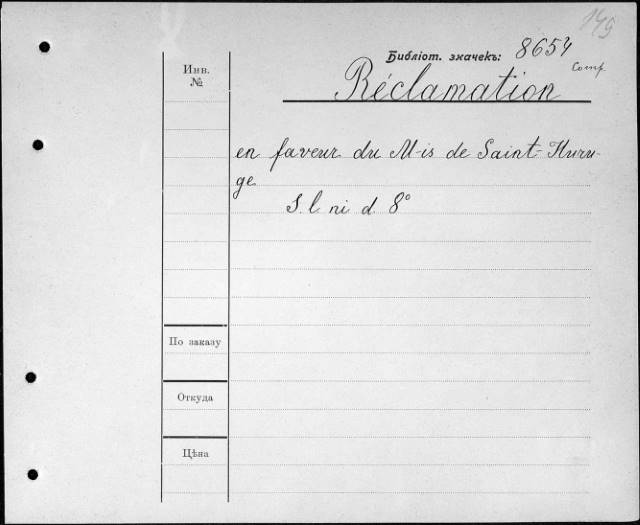 149
Библіот. значекъ: 8654
Comp.
Инв.
№
Réclamation
en faveur du M-is de Saint-Huru-
ge
S. l. ni d. 8°
По заказу
Откуда
Цѣна